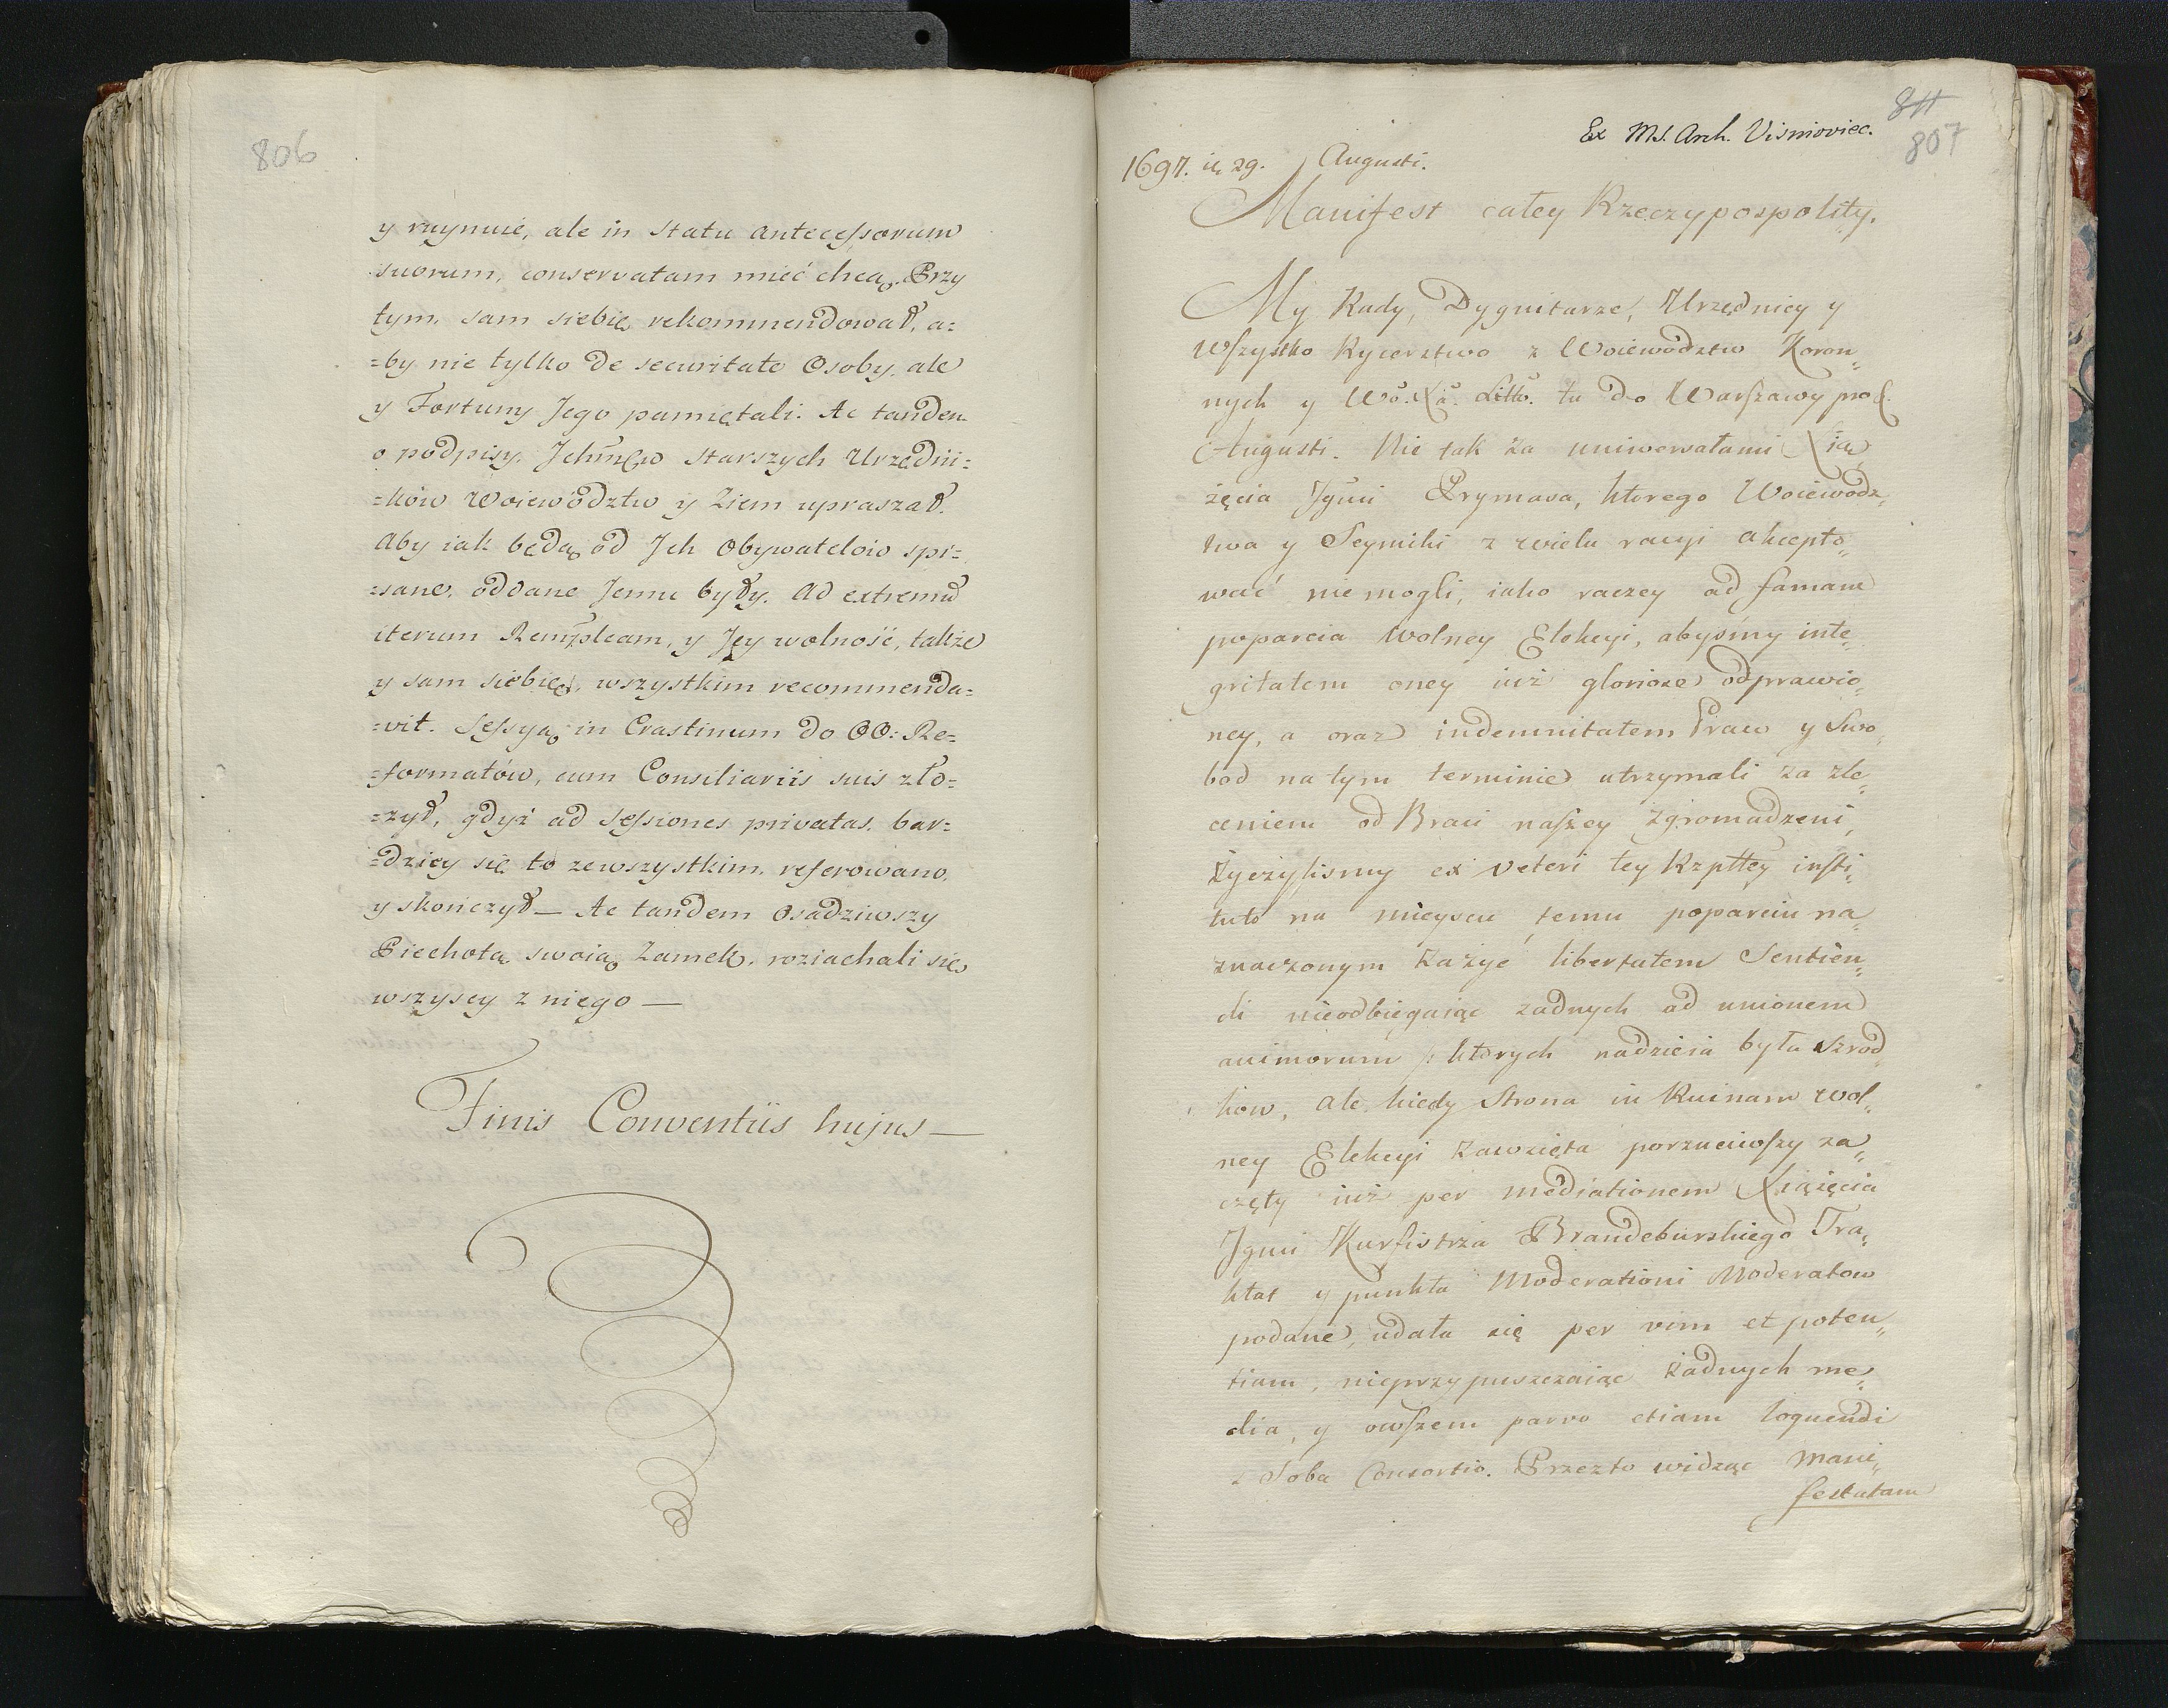 806
y rzymuie, ale in statu antecessorum
suorum, conservatam mieć chcą. Przy
tym, sam siebie rekommendował, a=
=by nie tylko de securitate Osoby, ale
y Fortuny Jego pamiętali. Ac tandem
o podpisy. Ichmćiow starszych Urzędni=
=ków Woiewództw y Ziem upraszał.
Aby iak będą od Ich Obywatelow spi=
=sane, oddane Jemu były. Ad extremu
iterum Rempbcam, y Jey wolność, także
y sam siebie, wszystkim recommenda=
=vit. Sessyą in Crastinum do OO: Re=
=formatów, cum Consiliariis suis zło=
=żył, gdyż ad sessiones privatas, bar=
=dziey się to zewszystkim, referowano,
y skończył — Ac tandem Osadziwszy
Piechotą swoią Zamek, roziachali się
wszyscy z niego —
Finis Conventiis hujus —
811
Ex MS. Arch. Visnioviec.
807
1697. 29. Augusti.
Manifest całey Rzeczypospolity.
My Rady, Dygnitarze, Urzędnicy y
Wszystko Rycerstwo z Woiewództw Koron„
nych y Wō. Xā. Littō. tu do Warszawy pro
Augusti. Nie tak za uniwersałami Xią„
żęcia Jgmi Prymasa, ktorego Woiewodz„
twa y Seymiki z wielu racyi akcepto„
wać nie mogli, iako raczey ad famam
poparcia wolney Elekcyi, abyśmy inte„
gritatem oney iuż gloriose odprawio„
ney, a oraz indemnitatem Praw y Swo„
bod na tym terminie utrzymali za zle„
ceniem od Braci naszey zgromadzeni,
Życzylismy ex veteri tey Rzpttey insti„
tuto na mieyscu temu poparciu na„
znaczonym zażyć libertatem Sentien„
di nieodbiegaiąc żadnych ad unionem
animorum /: ktorych nadzieia była szrod„
kow, ale kiedy Strona in Ruinam wol„
ney Elekcyi zawzięta porzuciwszy za„
częty iuż per mediationem Xiążęcia
Jgmi Kurfistrza Brandeburskiego Tra„
ktat y punkta Moderationi Moderatow
podane, udała się per vim et poten„
tiam, nieprzypuszczaiąc żadnych me„
dia, y owszem parvo etiam loquendi
z Soba Consortio. Przezto widząc mani„
festatam